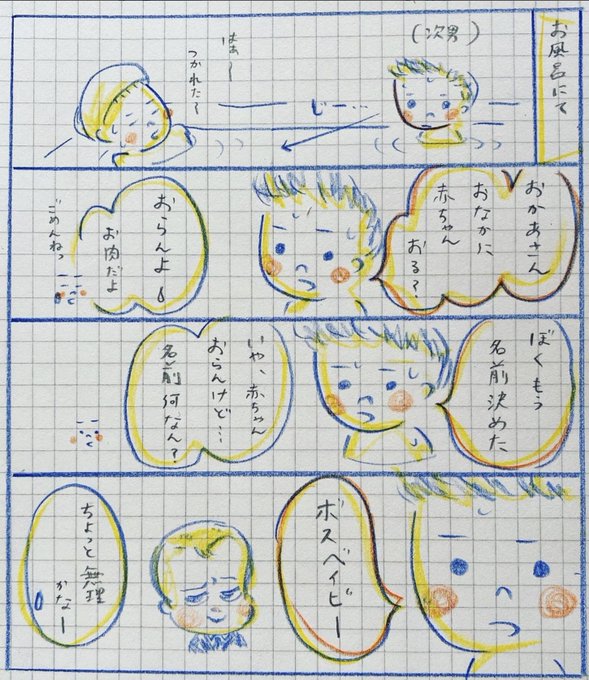 お風呂にて
(次男)
じー…
はぁ〜
つかれた〜
おかあさん
おなかに
赤ちゃん
おる?
おらんよ!
お肉だよ
ごめんねっ
ぼくもう
名前決めた
いや、赤ちゃん
おらんけど…
名前何なん?
ボスベイビー
ちょっと無理
かなー